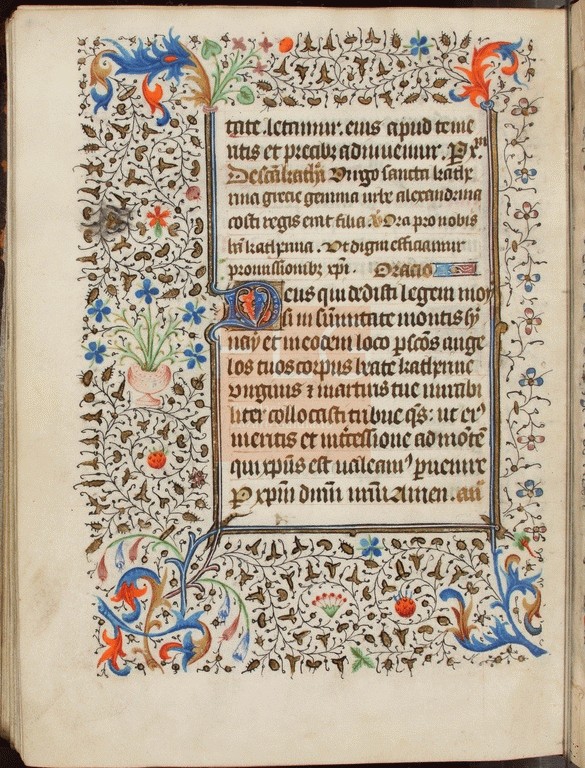 tate letamur. eius apud te me
ritis et precib; adiuuemur. P xp̄m
De scā kath̄a Virgo sancta kathe
rina grecie gemma urbe alexandrina
costi regis erat filia. V Ora pro nobis
bā katherina. Vt digni efficiamur
promissionib; xp̄i. Oracio
Deus qui dedisti legem moy
si in sūmitate montis sy
nay et in eodem loco p scōs ange
los tuos corpus beate katherine
virginis ⁊ martiris tue mirabi
liter collocasti tribue qs: ut eiꝰ
meritis et intercessione ad mōtē
qui xp̄us est ualeamꝰ peruenire
P xp̄m dn̄m nr̄m Amen.